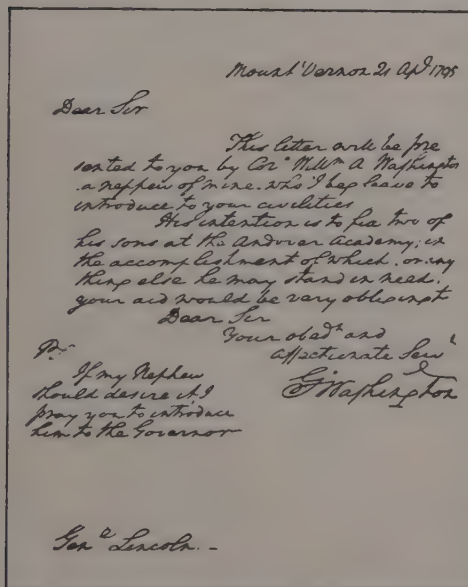 Mount Vernon 21 Apl 1795
Dear Sir
This letter will be pre
sented to you by Colo Willm A Washington
a nephew of mine who I beg leave to
introduce to your civilities
His intention is to fix two of
his sons at the Andover Academy; in
the accomplishment of which, or any
thing else he may stand in need,
your aid would be very obliging to
Dear Sir
Your obedt and
Affectionate Servt
G Washington
Ps
If my Nephew
should desire it I
pray you to introduce
him to the Governor
Genl Lincoln. -